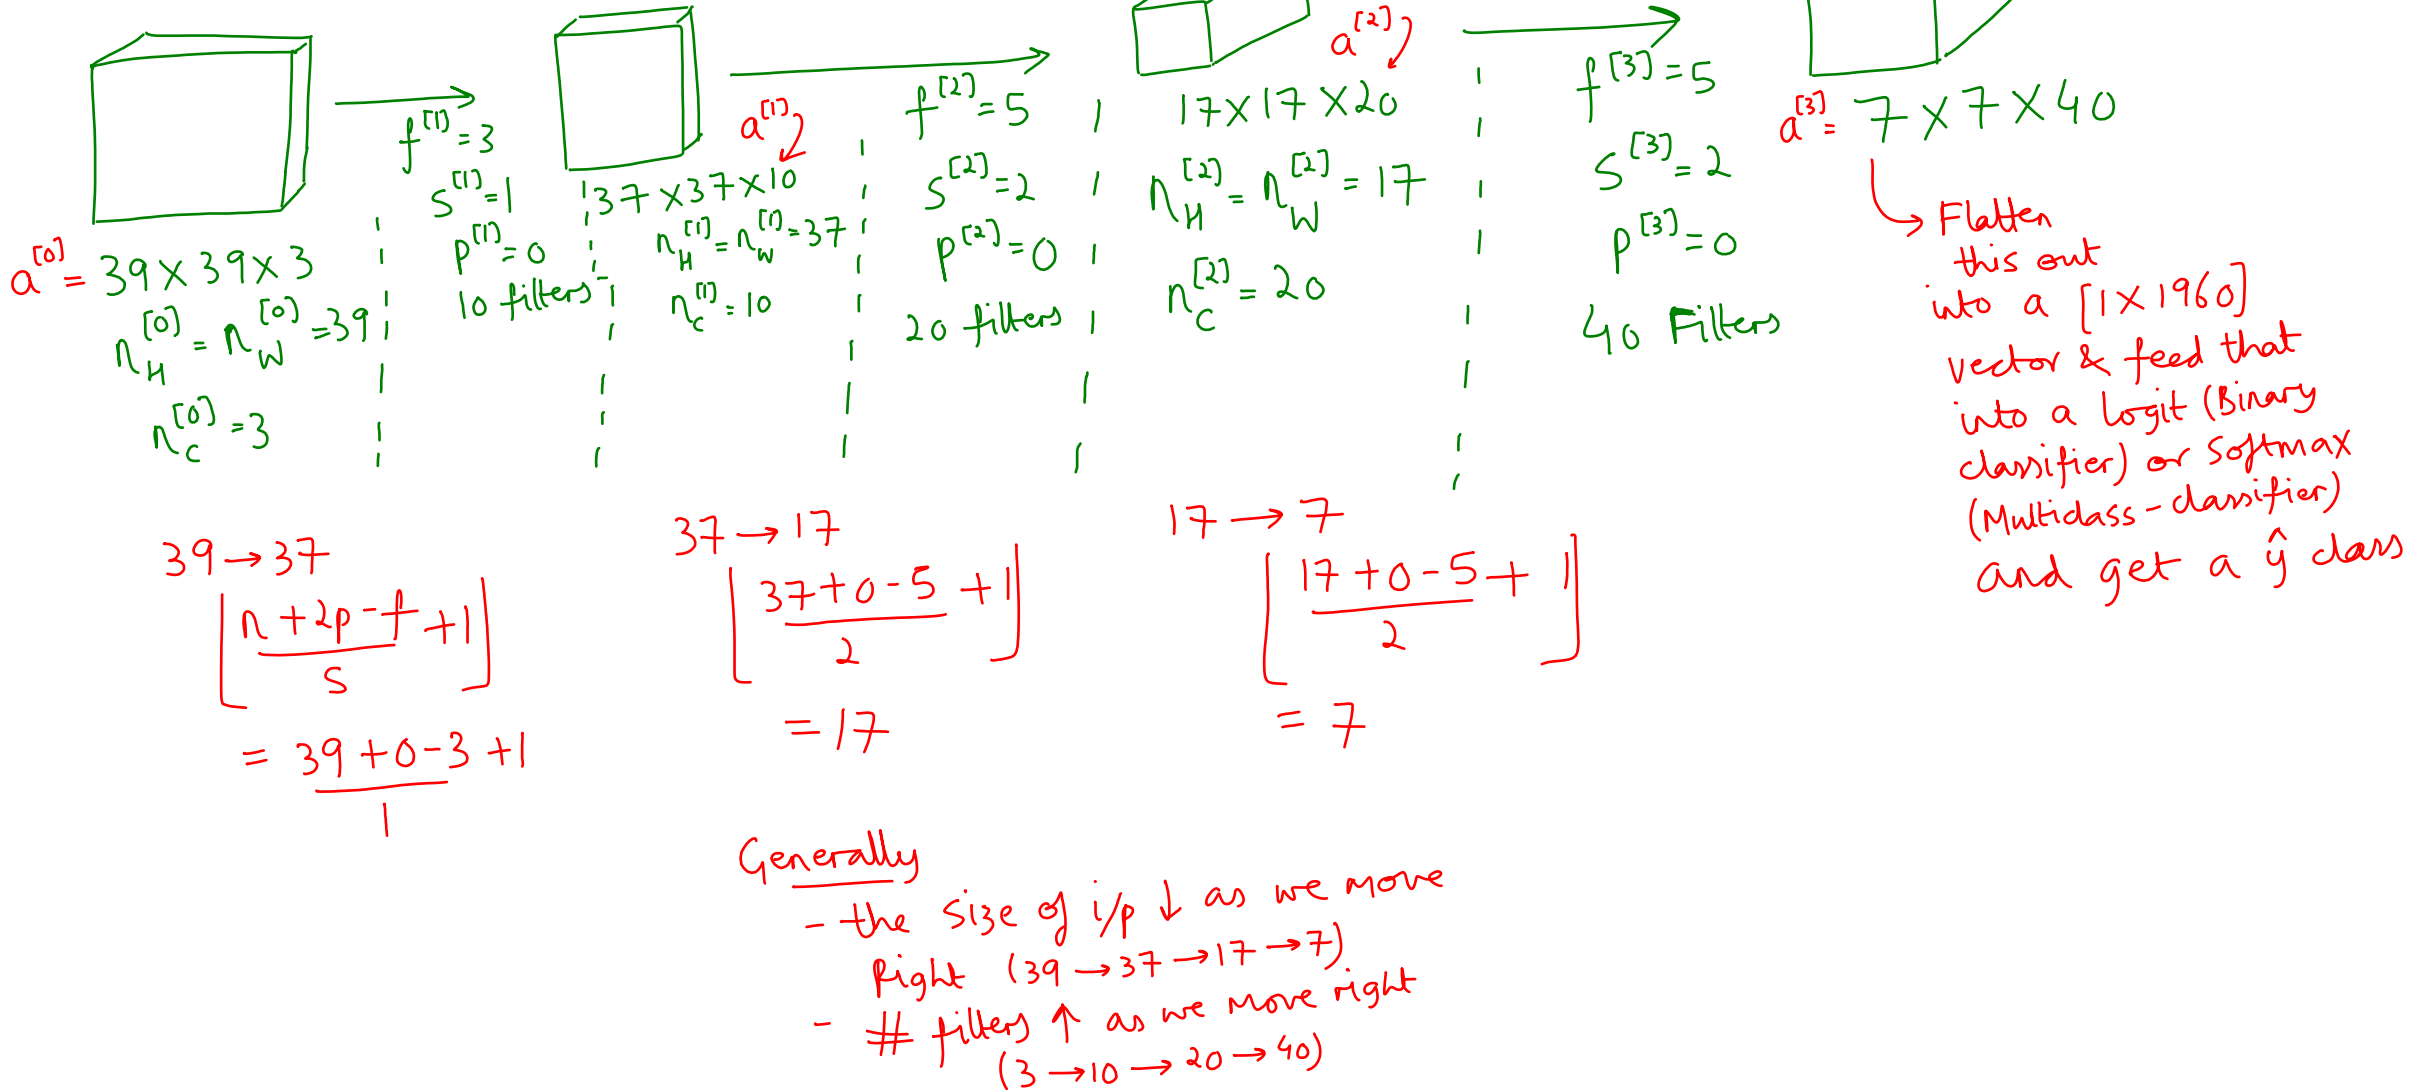 a^[0] = 39 × 39 × 3
n_H^[0] = n_W^[0] = 39
n_C^[0] = 3
f^[1] = 3
s^[1] = 1
p^[1] = 0
10 filters
a^[1]
37 × 37 × 10
n_H^[1] = n_W^[1] = 37
n_C^[1] = 10
f^[2] = 5
s^[2] = 2
p^[2] = 0
20 filters
a^[2]
17 × 17 × 20
n_H^[2] = n_W^[2] = 17
n_C^[2] = 20
f^[3] = 5
s^[3] = 2
p^[3] = 0
40 Filters
a^[3] = 7 × 7 × 40
→ Flatten
this out
into a [1 × 1960]
vector & feed that
into a logit (Binary
classifier) or softmax
(Multiclass-classifier)
and get a ŷ class
39 → 37
[(n + 2p - f)/s + 1]
= (39 + 0 - 3)/1 + 1
37 → 17
[(37 + 0 - 5)/2 + 1]
= 17
17 → 7
[(17 + 0 - 5)/2 + 1]
= 7
Generally
- the size of i/p ↓ as we move
Right (39 → 37 → 17 → 7)
- # filters ↑ as we move right
(3 → 10 → 20 → 40)